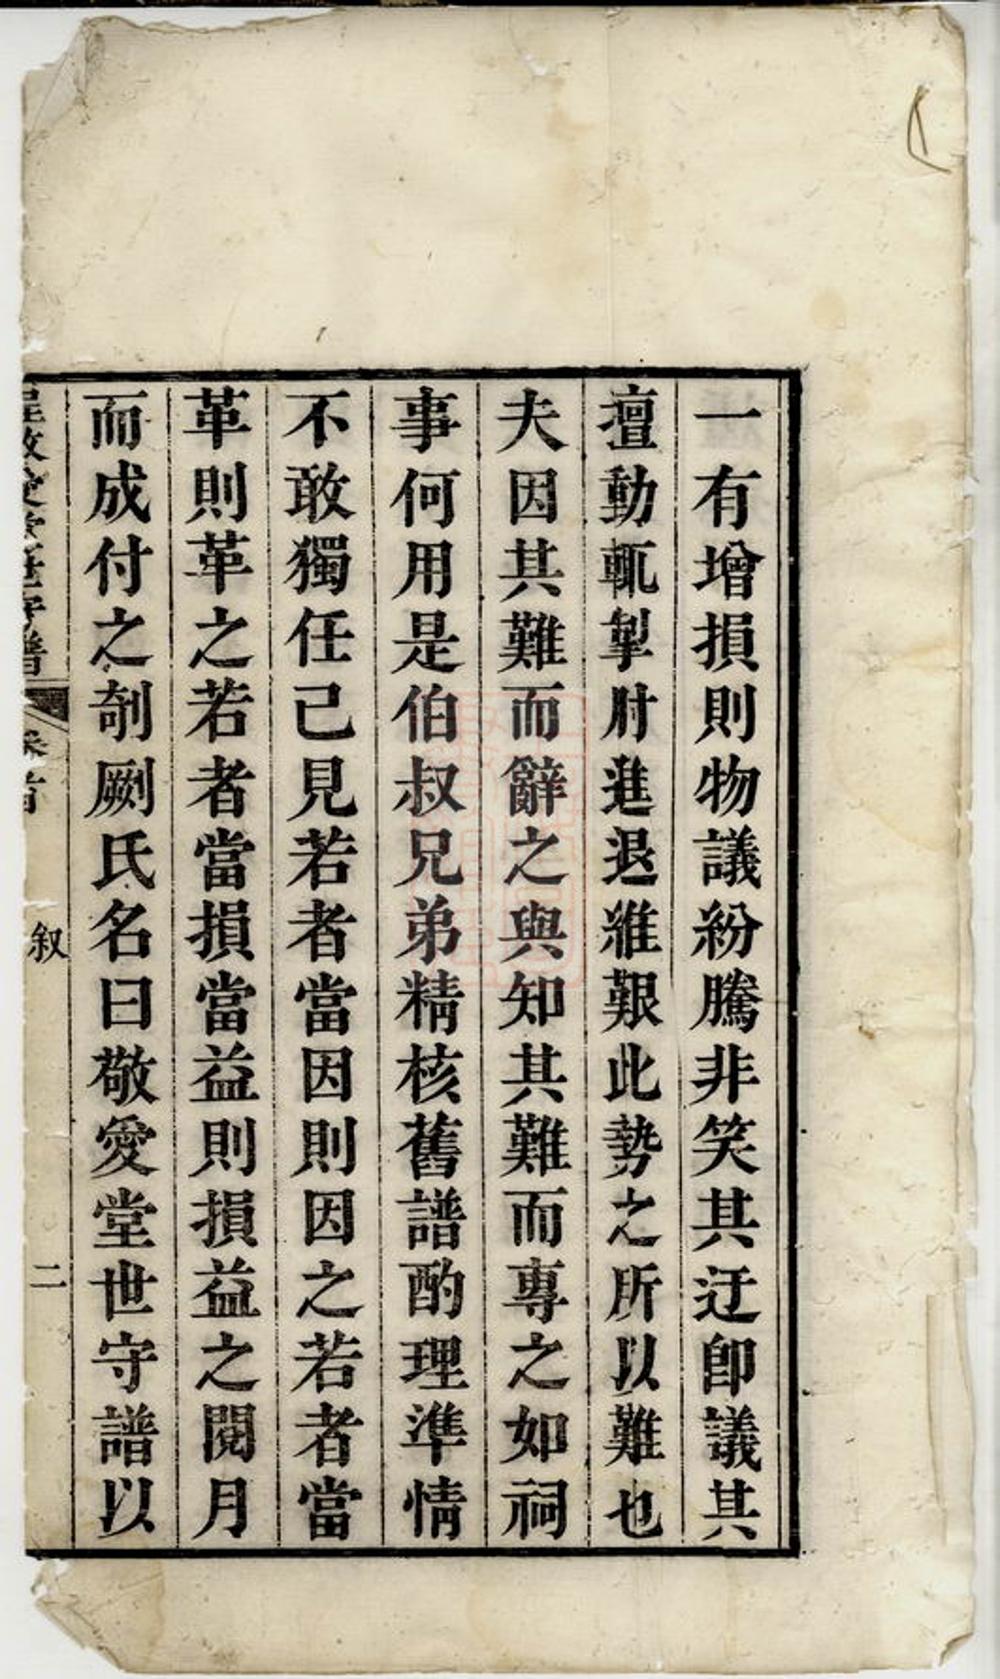 一有增損則物議紛騰非笑其迂卽議其
擅動輒掣肘進退維艱此勢之所以難也
夫因其難而辭之與知其難而專之如祠
事何用是伯叔兄弟精核舊譜酌理準情
不敢獨任己見若者當因則因之若者當
革則革之若者當損當益則損益之閱月
而成付之剞劂氏名曰敬愛堂世守譜以
守譜 卷首 叙 二